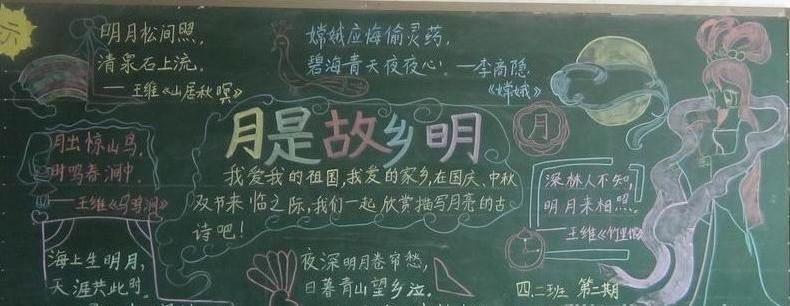 明月松间照，
清泉石上流。
——王维《山居秋暝》
嫦娥应悔偷灵药，
碧海青天夜夜心。——李商隐
《嫦娥》
月是故乡明
月
月出惊山鸟，
时鸣春涧中。
——王维《鸟鸣涧》
我爱我的祖国，我爱的家乡，在国庆、中秋
双节来临之际，我们一起欣赏描写月亮的古
诗吧！
深林人不知，
明月来相照。
——王维《竹里馆》
海上生明月，
天涯共此时。
夜深明月卷帘愁，
日暮青山望乡泣。
四.二班 第二期